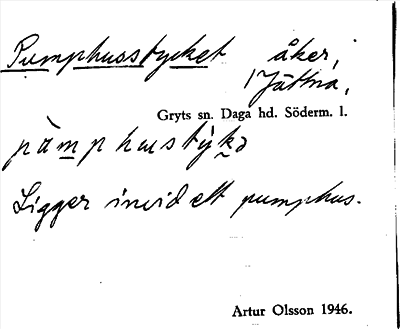 Pumphusstycket åker,
1 Jättna,
Gryts sn. Daga hd. Söderm. l.
pàmphusty̆kə
Ligger invid ett pumphus.
Artur Olsson 1946.